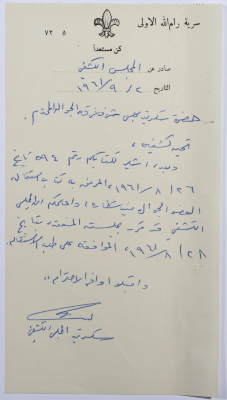 سرية رام الله الاولى
٧٣ ٥
كن مستعداً
صادر عن المجلس الكشفي
التاريخ ٢ / ٩ / ١٩٦١
حضرة سكرتير مجلس شرف فرقة الجوالة المحترم .
تحية كشفية ،
وبعد ، اشير لكتابكم رقم ٥٩٤ تاريخ
٢٦ / ٨ / ١٩٦١ والمرفق به كتاب استقالة
العضو الجوال واعلمكم ان المجلس
الكشفي قد قرر بجلسته المنعقدة بتاريخ
٢٨ / ٨ / ١٩٦١ الموافقة على طلب الاستقالة
واقبلوا وافر الاحترام ،،
سكرتير المجلس الكشفي